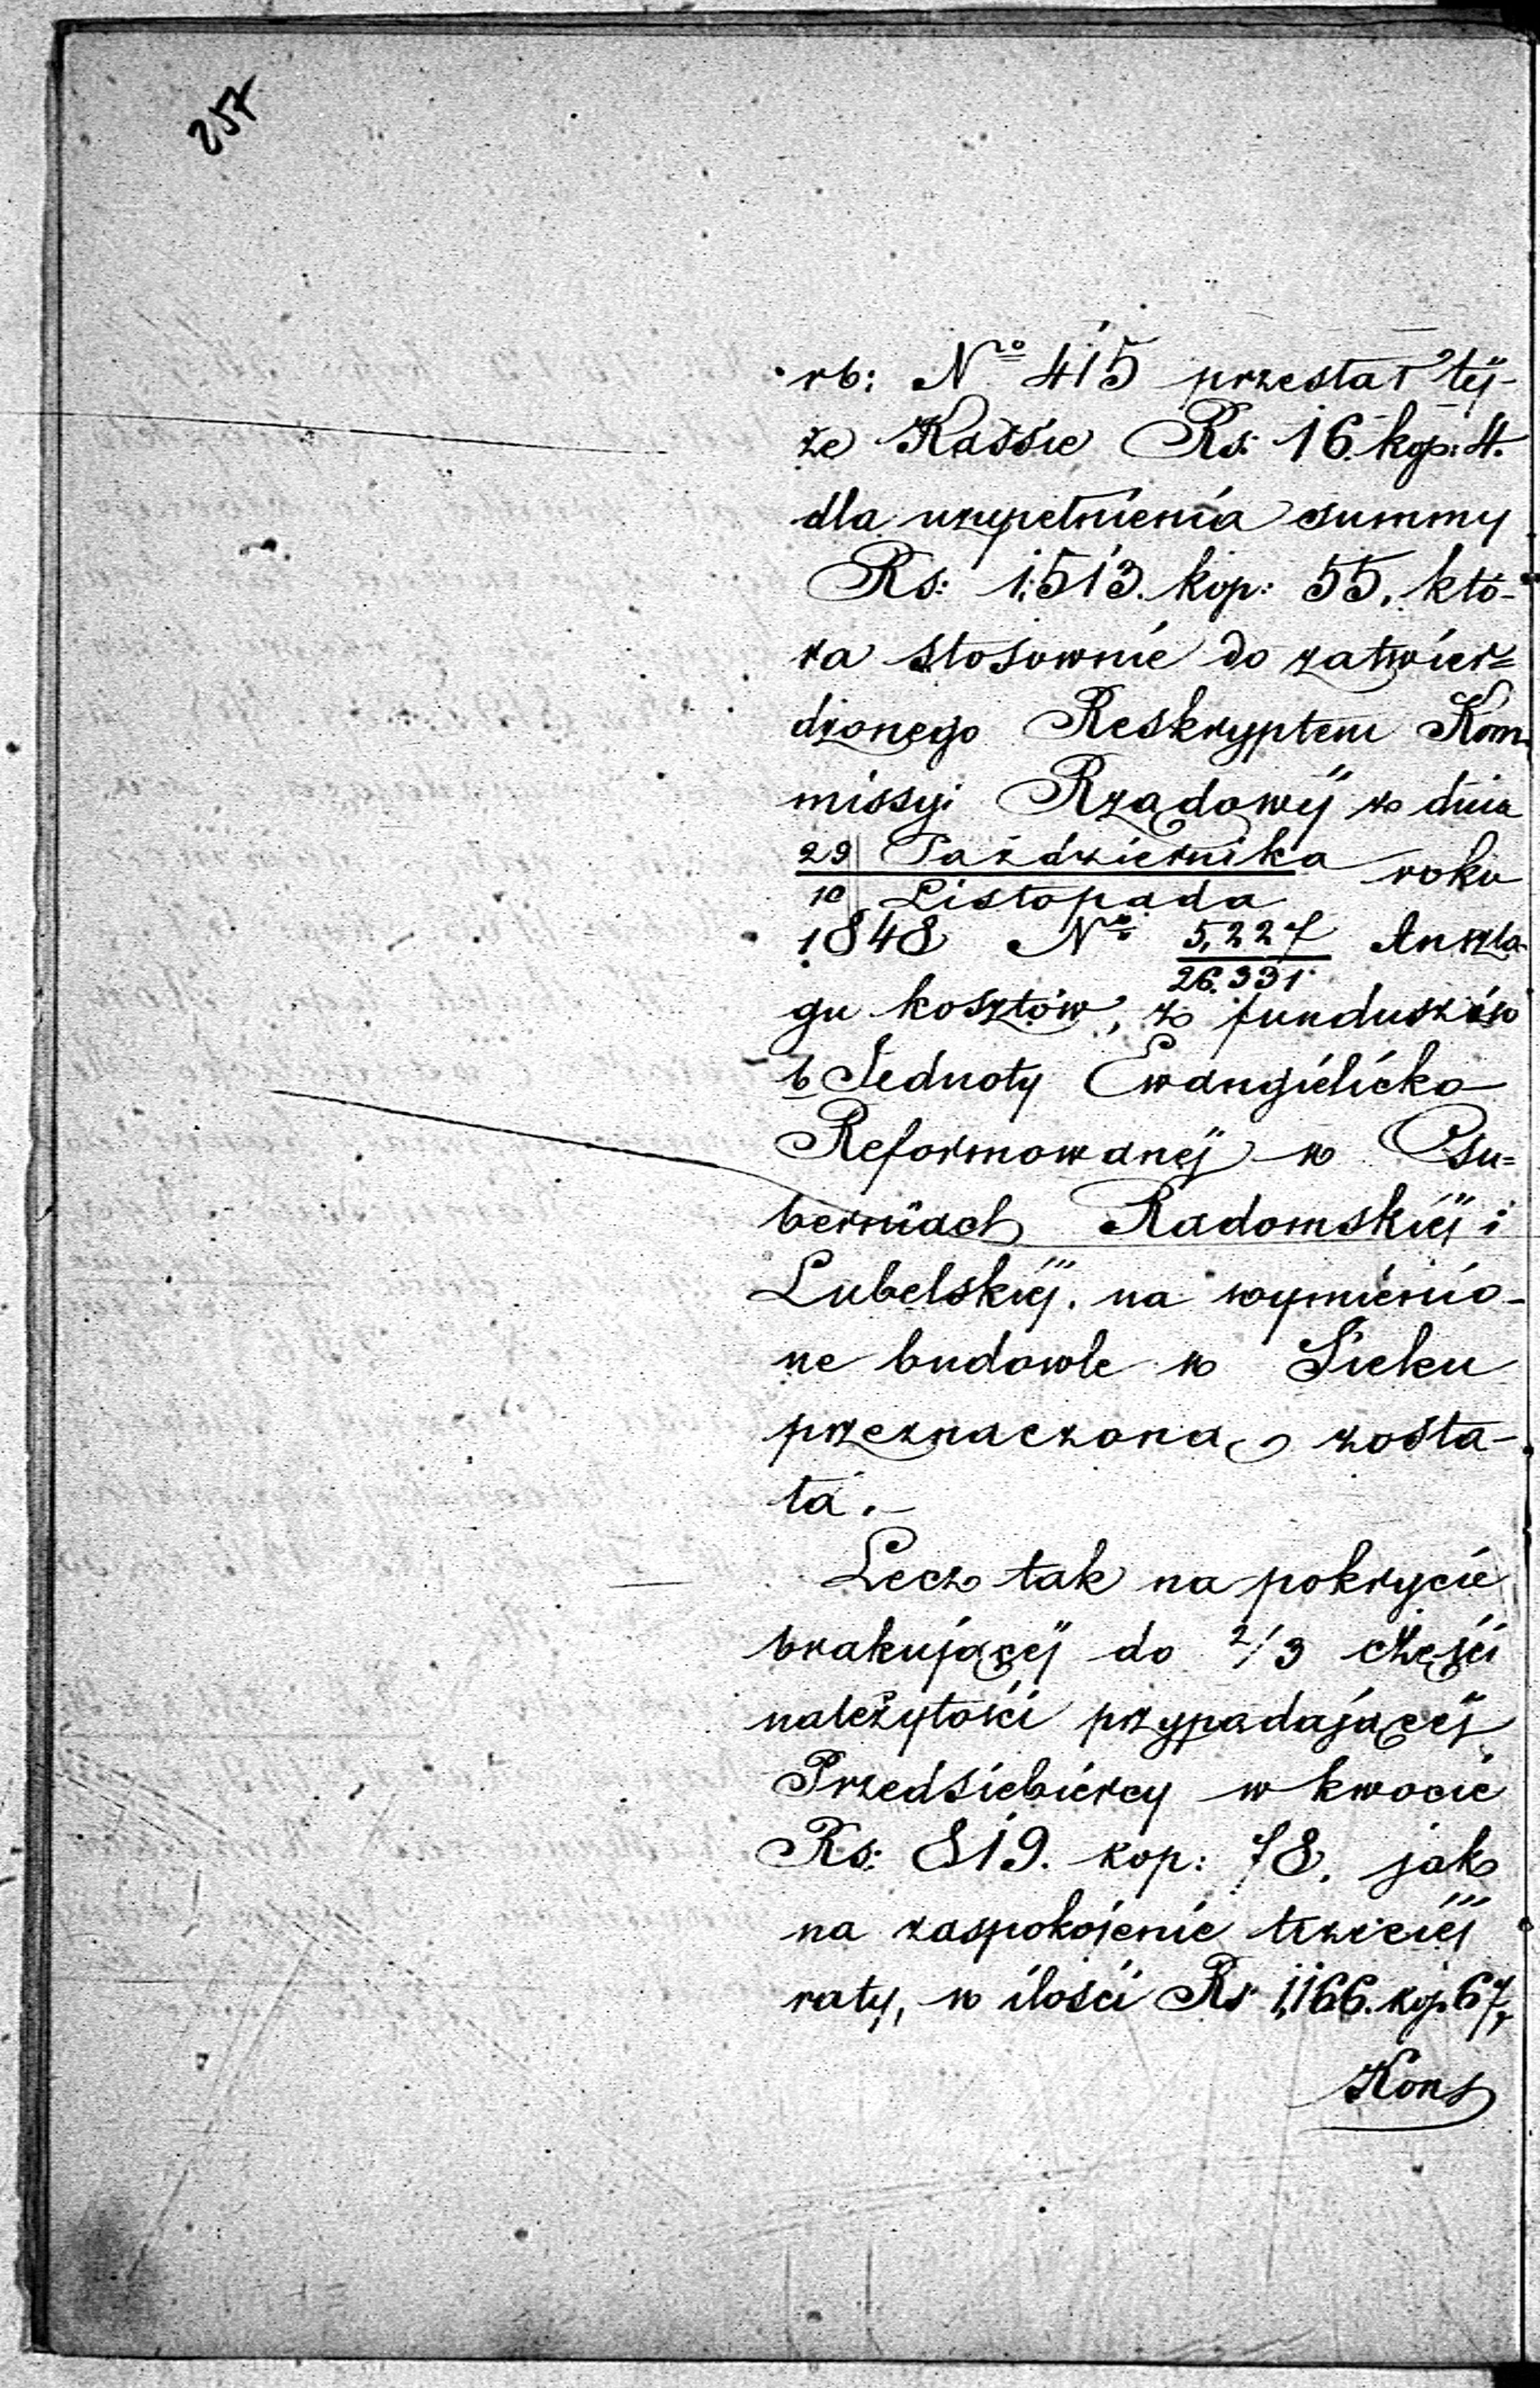 257
rb: No 415 przesłał téj-
że Kassie Rs: 16. kop: 4.
dla uzupełnienia summy
Rs: 1,513. kop: 55, któ-
ra stosownie do zatwier=
dzonego Reskryptem Kom
missyi Rządowéj z dnia
29 Października
roku
10 Listopada
1848 No 5,227 Anszla-
26.331
gu kosztów, z funduszów
b Jednoty Ewangielicko
Reformowanéj w Gu=
berniach Radomskiéj i
Lubelskiéj, na wymienio-
ne budowle w Sieku
przeznaczoną zosta-
ła.-
Lecz tak na pokrycie
brakującéj do 2/3 części
należytości przypadającéj
Przedsiebiercy w kwocie
Rs: 819. kop: 78. jak
na zaspokojenie trzeciéj
raty, w ilości Rs 1,166. kop. 67,
Kons